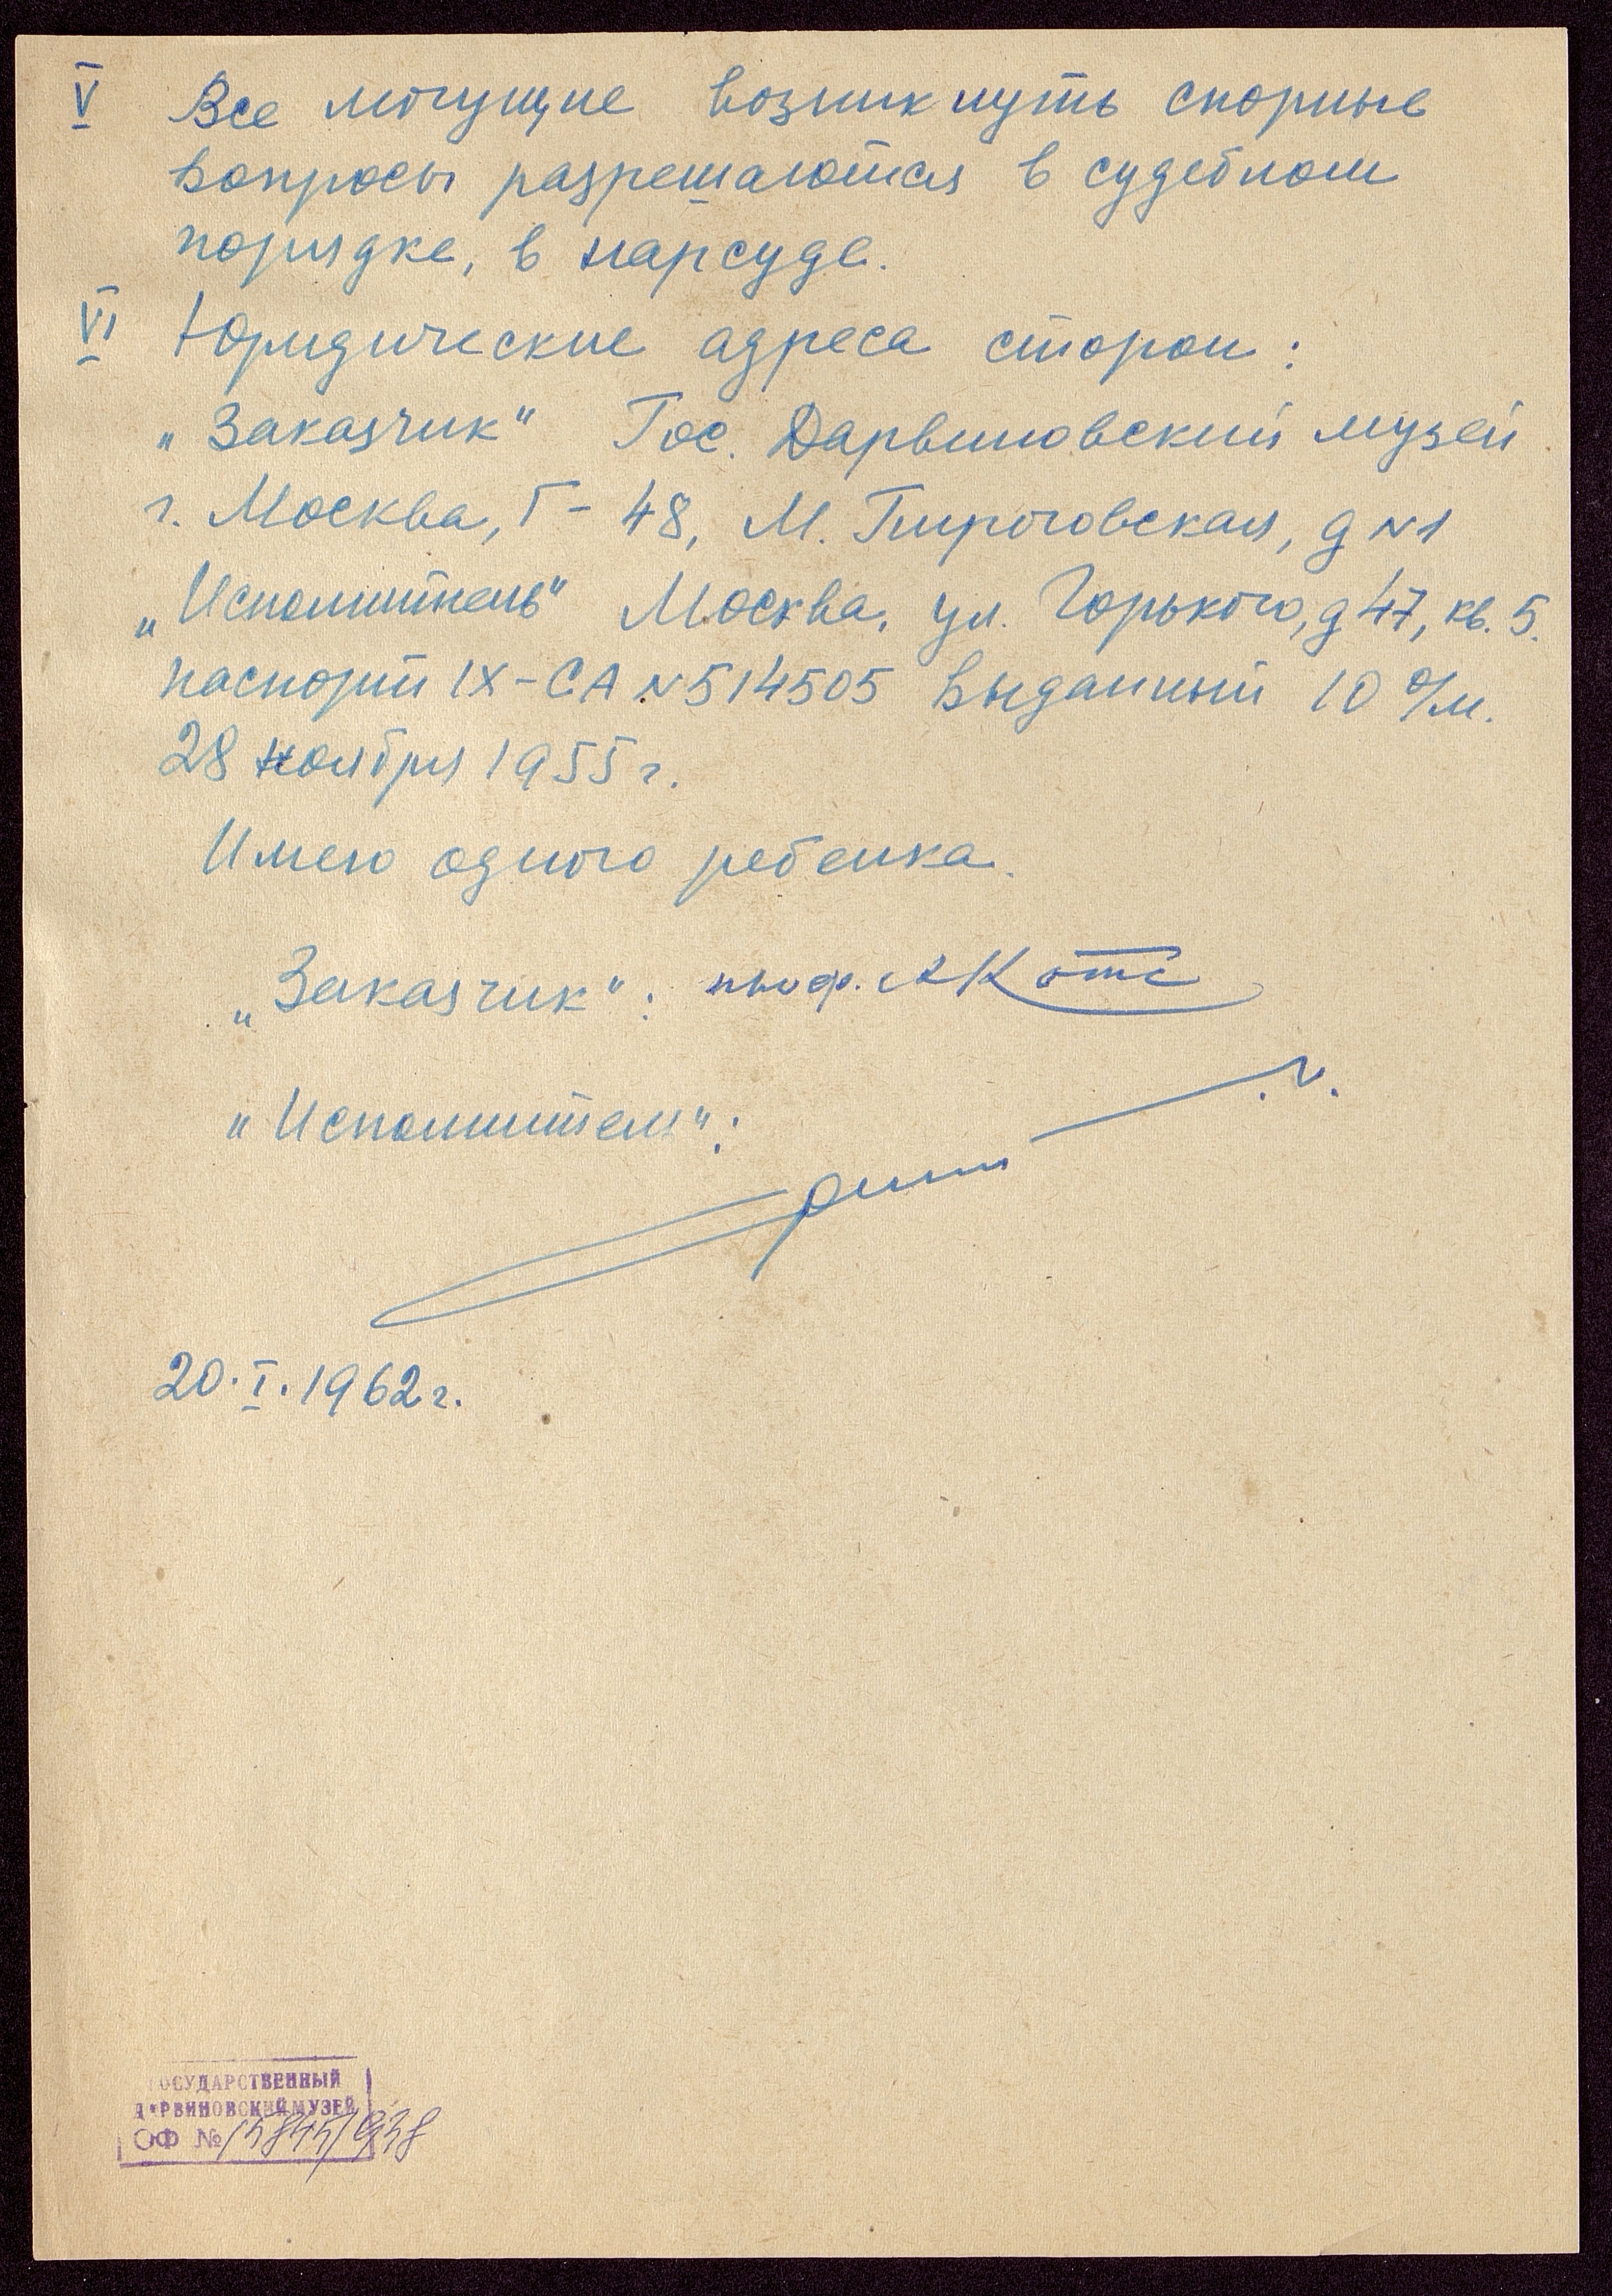 V Все могущие возникнуть спорные
вопросы разрешаются в судебном
порядке, в нарсуде.
VI Юридические адреса сторон:
„Заказчик" Гос. Дарвиновский музей
г. Москва, Г-48, М. Пироговская, д N1
„Исполнитель" Москва, ул. Горького, д 47, кв. 5.
паспорт IX-СА N514505 выданный 10 о/м.
28 ноября 1955 г.
Имею одного ребенка.
„Заказчик": проф. АКотс
"Исполнитель":
20.I.1962 г.
ГОСУДАРСТВЕННЫЙ
ДАРВИНОВСКИЙ МУЗЕЙ
ОФ № 15845/938